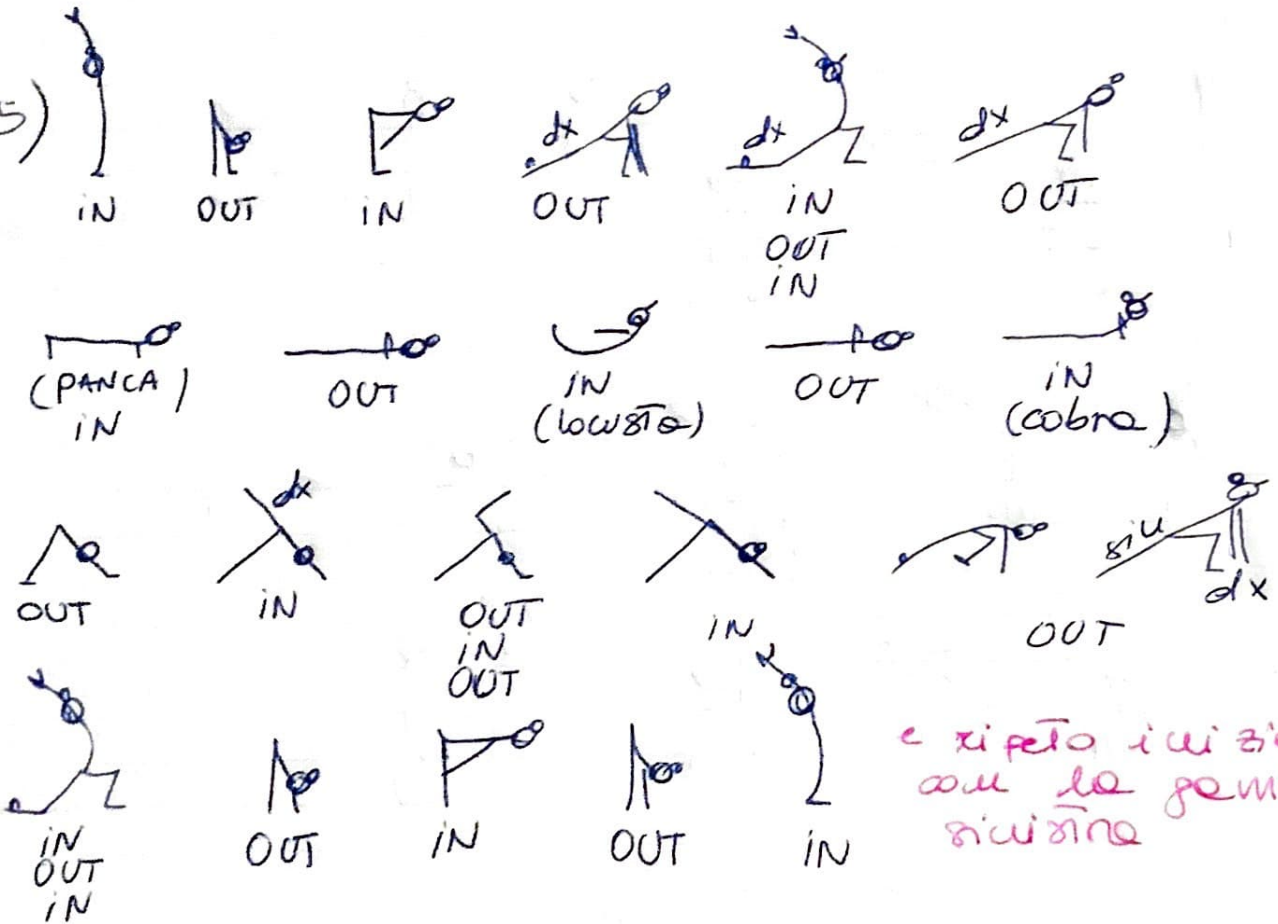 5)
iN OUT iN
dx OUT
dx iN
OUT
iN
dx OUT
(PANCA)
iN
OUT
iN
(locusta)
OUT
iN
(cobra)
OUT
dx
iN
OUT
iN
OUT
iN
sin
dx
OUT
iN
OUT
iN
OUT
iN
OUT
iN
e ripeto
con la
sinistra